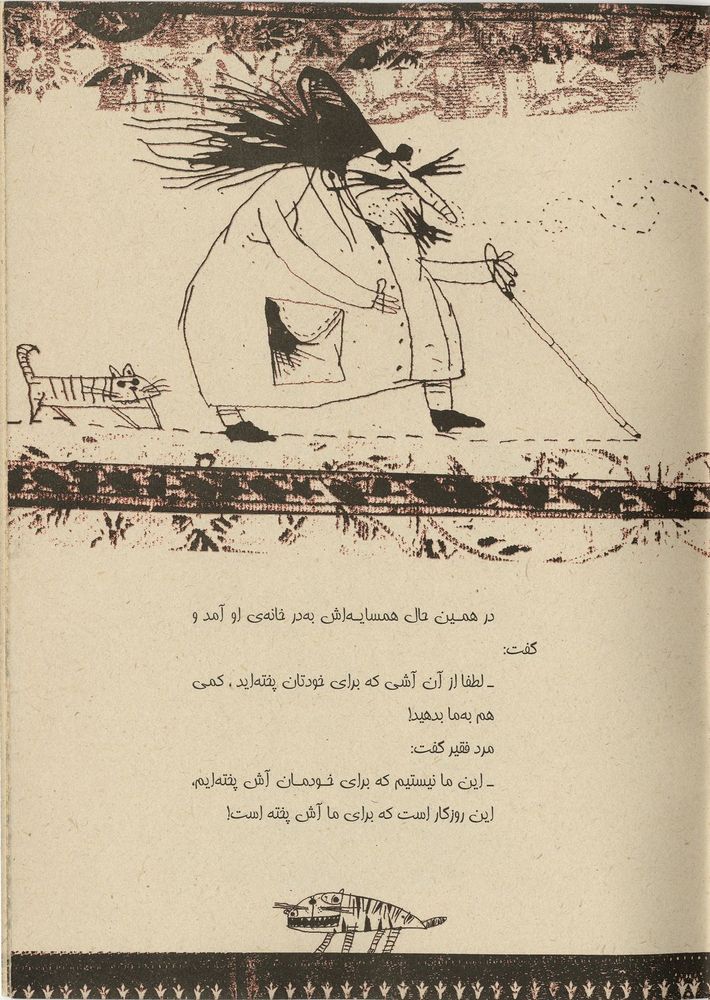 در همین حال همسایه‌اش به‌در خانه‌ی او آمد و
گفت:
ـ لطفا از آن آشی که برای خودتان پخته‌اید ، کمی
هم به‌ما بدهید!
مرد فقیر گفت:
ـ این ما نیستیم که برای خودمان آش پخته‌ایم،
این روزگار است که برای ما آش پخته است!